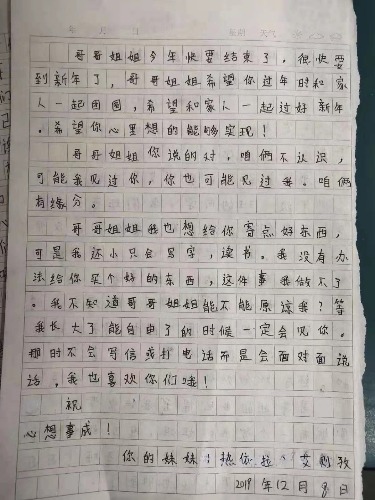 年 月 日 星期 天气
哥哥姐姐今年快要结束了,很快要
到新年了,哥哥姐姐希望你过年时和家
人一起团圆,希望和家人一起过好新年
。希望你心里想的能够实现!
哥哥姐姐你说的对,咱俩不认识,
可能我见过你,你也可能见过我。咱俩
有缘分。
哥哥姐姐我也想给你寄点好东西,
可是我还小只会写字,读书。我没有办
法给你买个好的东西,这件事我做不了
。我不知道哥哥姐姐能不能原谅我?等
我长大了能自由了的时候一定会见你。
那时不会写信或打电话而是会面对面说
话,我也喜欢你们哦!
祝
心想事成!
你的妹妹:热依拉·艾则孜
2019年12月8日